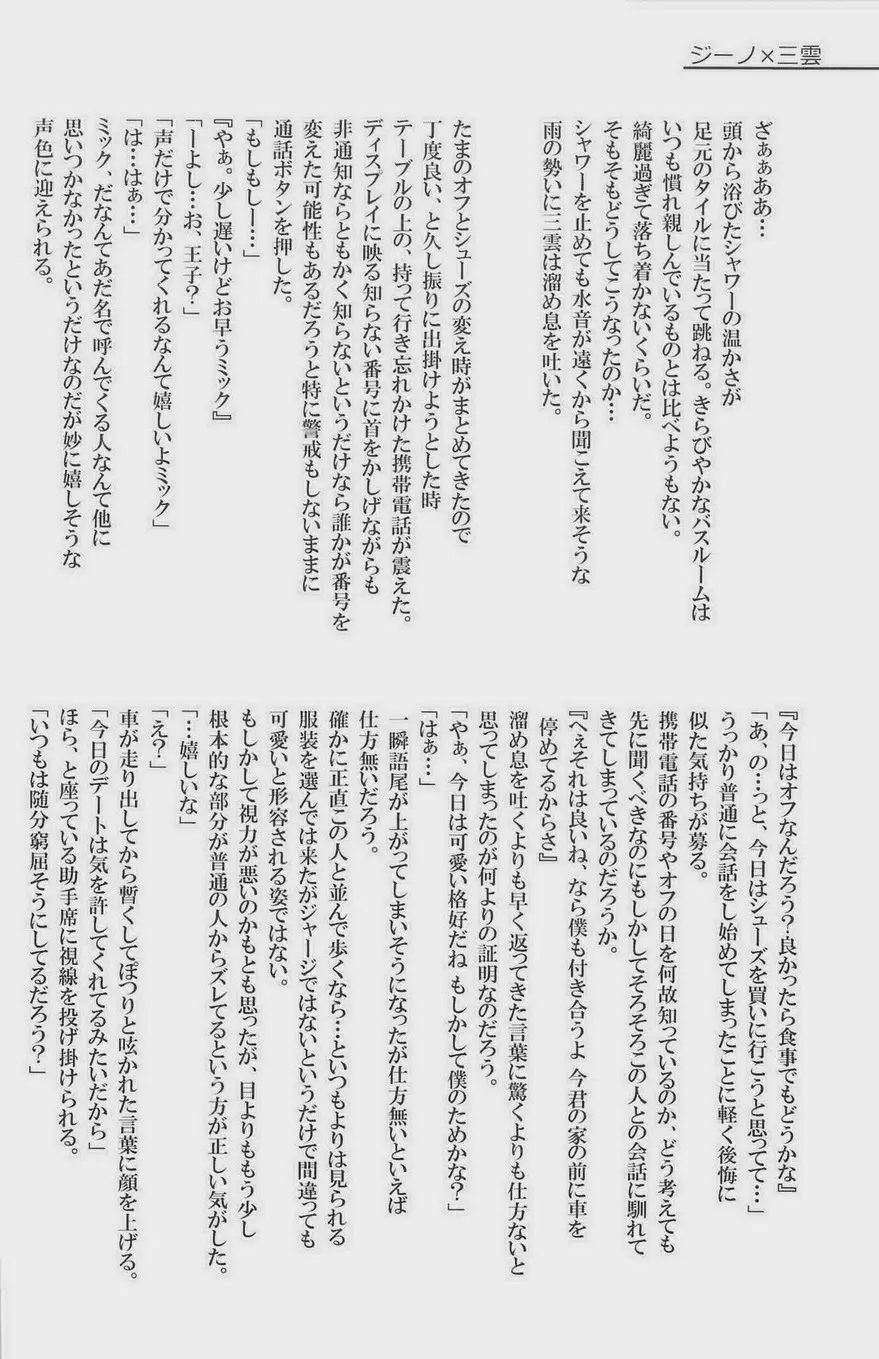 ジーノ×三雲
ざぁぁああ…
頭から浴びたシャワーの温かさが
足元のタイルに当たって跳ねる。きらびやかなバスルームは
いつも慣れ親しんでいるものとは比べようもない。
綺麗過ぎて落ち着かないくらいだ。
そもそもどうしてこうなったのか…
シャワーを止めても水音が遠くから聞こえて来そうな
雨の勢いに三雲は溜め息を吐いた。
たまのオフとシューズの変え時がまとめてきたので
丁度良い、と久し振りに出掛けようとした時
テーブルの上の、持って行き忘れかけた携帯電話が震えた。
ディスプレイに映る知らない番号に首をかしげながらも
非通知ならともかく知らないというだけなら誰かが番号を
変えた可能性もあるだろうと特に警戒もしないままに
通話ボタンを押した。
「もしもしー…」
『やぁ。少し遅いけどお早うミック』
「ーよし…お、王子?」
「声だけで分かってくれるなんて嬉しいよミック」
「は…はぁ…」
ミック、だなんてあだ名で呼んでくる人なんて他に
思いつかなかったというだけなのだが妙に嬉しそうな
声色に迎えられる。
『今日はオフなんだろう?良かったら食事でもどうかな』
「あ、の…っと、今日はシューズを買いに行こうと思ってて…」
うっかり普通に会話をし始めてしまったことに軽く後悔に
似た気持ちが募る。
携帯電話の番号やオフの日を何故知っているのか、どう考えても
先に聞くべきなのにもしかしてそろそろこの人との会話に馴れて
きてしまっているのだろうか。
『へぇそれは良いね、なら僕も付き合うよ 今君の家の前に車を
停めてるからさ』
溜め息を吐くよりも早く返ってきた言葉に驚くよりも仕方ないと
思ってしまったのが何よりの証明なのだろう。
「やぁ、今日は可愛い格好だね もしかして僕のためかな?」
「はぁ…」
一瞬語尾が上がってしまいそうになったが仕方無いといえば
仕方無いだろう。
確かに正直この人と並んで歩くなら…といつもよりは見られる
服装を選んでは来たがジャージではないというだけで間違っても
可愛いと形容される姿ではない。
もしかして視力が悪いのかもとも思ったが、目よりももう少し
根本的な部分が普通の人からズレてるという方が正しい気がした。
「…嬉しいな」
「え?」
車が走り出してから暫くしてぽつりと呟かれた言葉に顔を上げる。
「今日のデートは気を許してくれてるみたいだから」
ほら、と座っている助手席に視線を投げ掛けられる。
「いつもは随分窮屈そうにしてるだろう?」